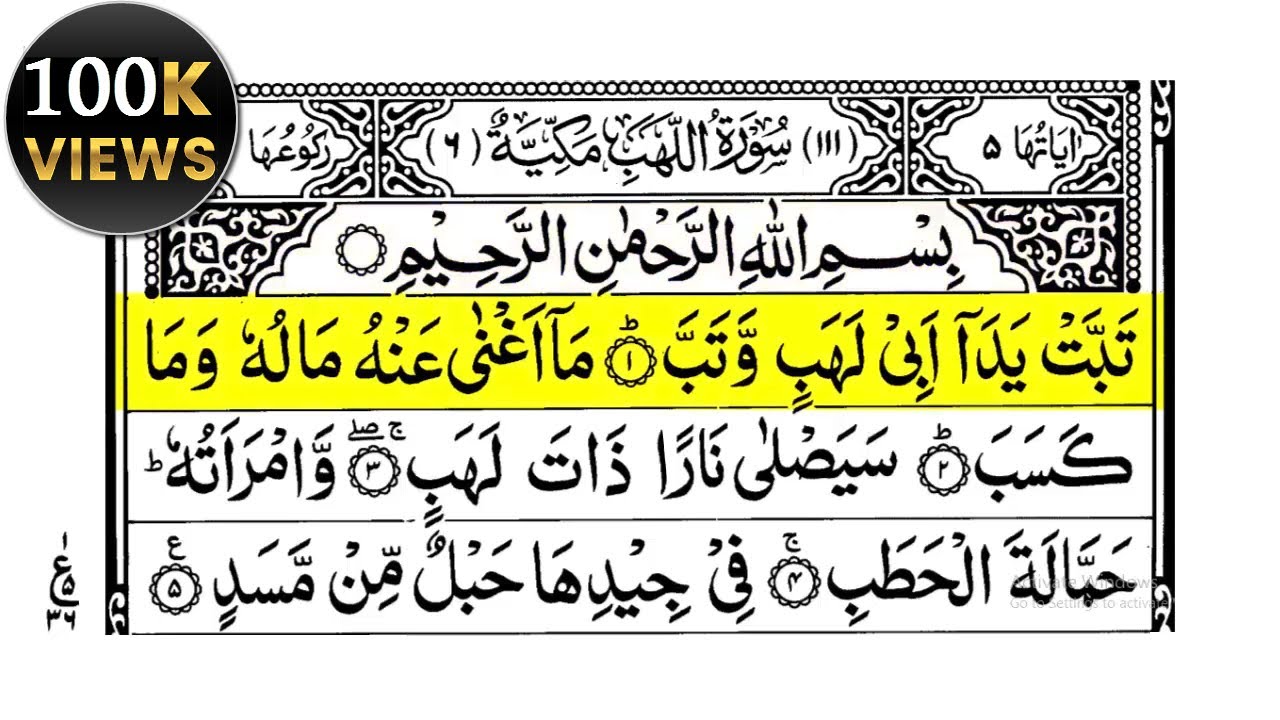 100K
VIEWS
اٰيَاتُهَا ٥ (١١١) سُوْرَةُ اللَّهَبِ مَكِّيَّةٌ (٦) رُكُوْعُهَا
بِسْمِ اللّٰهِ الرَّحْمٰنِ الرَّحِيْمِ
تَبَّتْ يَدَآ اَبِيْ لَهَبٍ وَّتَبَّ ؕ ١ مَآ اَغْنٰى عَنْهُ مَالُهٗ وَمَا
كَسَبَ ؕ ٢ سَيَصْلٰى نَارًا ذَاتَ لَهَبٍ ۚۖ ٣ وَّامْرَاَتُهٗ ؕ
حَمَّالَةَ الْحَطَبِ ۚ ٤ فِيْ جِيْدِهَا حَبْلٌ مِّنْ مَّسَدٍ ٥ ع
ع
٥
٣٦
Activate Windows
Go to Settings to activate